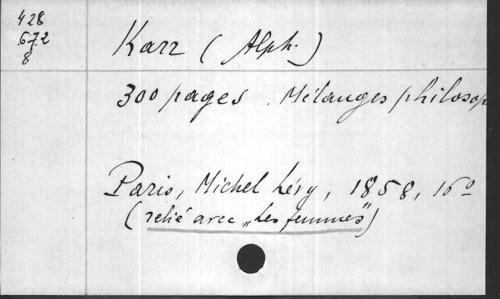 428
672
8
Karr (Alph.)
300 pages. Mélanges philosop
Paris, Michel Lévy, 1858, 16º
(relié avec „Les femmes")